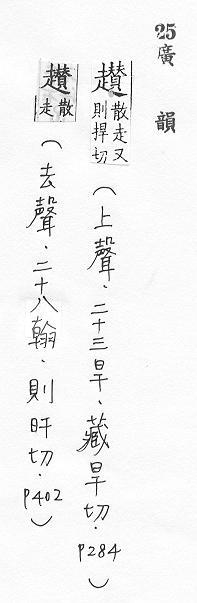 25 廣韻
趲 散走又則捍切(上聲.二十三旱.藏旱切.P284)
趲 散走(去聲.二十八翰.則旰切.P402)